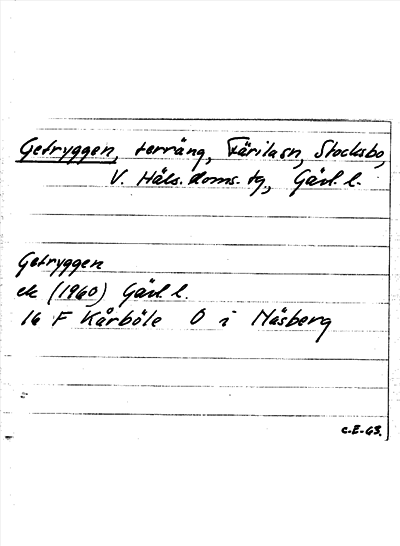 Getryggen, terräng, Färila sn, Stocksbo,
V. Häls. doms. tg, Gävl. l.
Getryggen
ek (1960) Gävl. l.
16 F Kårböle O i Näsberg
C.E-63.